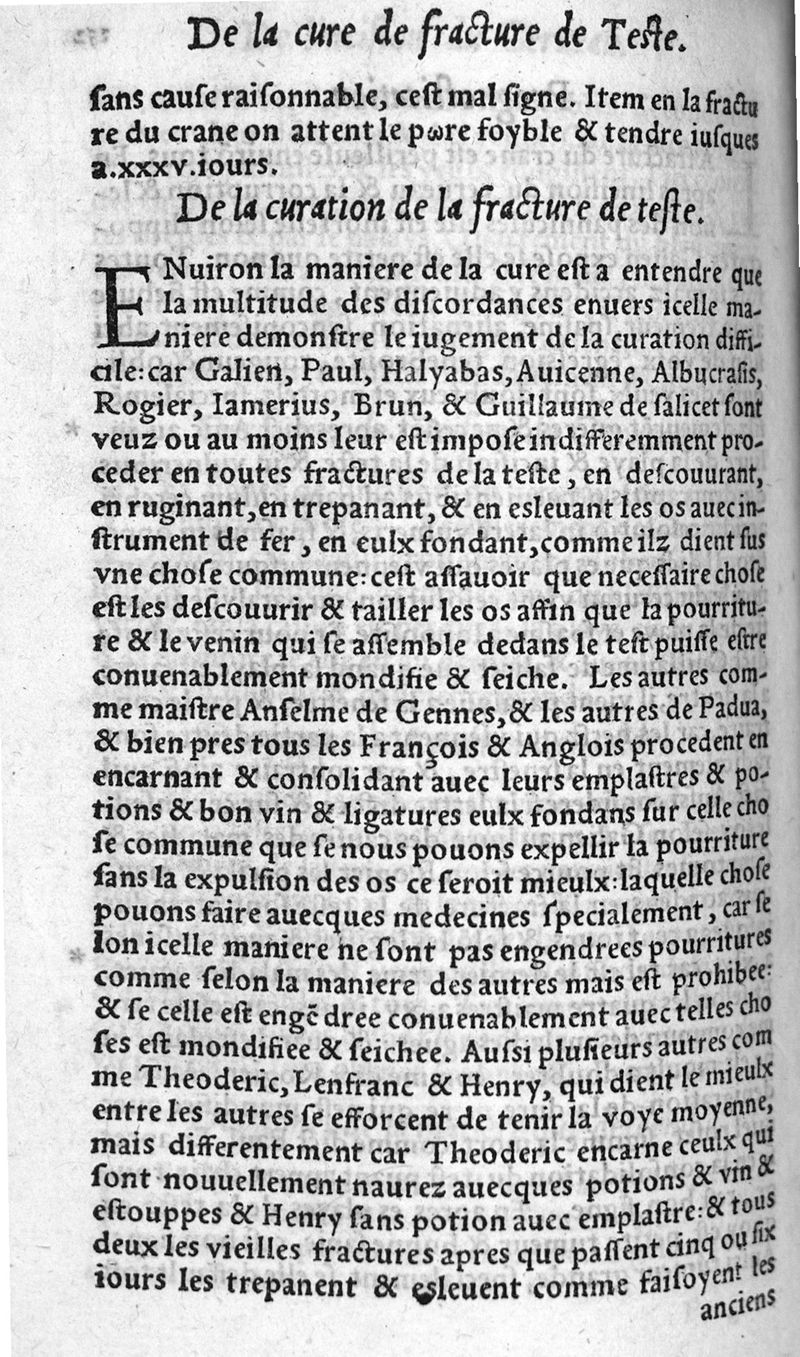 De la cure de fracture de Teste.
ſans cauſe raiſonnable, ceſt mal ſigne. Item en la fractu
re du crane on attent le pωre foyble & tendre iuſques
a.xxxv.iours.
De la curation de la fracture de teste.
ENuiron la maniere de la cure eſt a entendre que
la multitude des diſcordances enuers icelle ma-
niere demonſtre le iugement de la curation diffi-
cile: car Galien, Paul, Halyabas, Auicenne, Albucraſis,
Rogier, Iamerius, Brun, & Guillaume de ſalicet ſont
veuz ou au moins leur eſt impoſe indifferemment pro-
ceder en toutes fractures de la teſte, en deſcouurant,
en ruginant, en trepanant, & en esleuant les os auec in-
ſtrument de fer, en eulx fondant, comme ilz dient ſus
vne choſe commune: ceſt aſſauoir que neceſſaire choſe
eſt les deſcouurir & tailler les os affin que la pourritu-
re & le venin qui ſe aſſemble dedans le teſt puiſſe eſtre
conuenablement mondifie & ſeiche. Les autres com-
me maiſtre Anſelme de Gennes, & les autres de Padua,
& bien pres tous les François & Anglois procedent en
encarnant & conſolidant auec leurs emplaſtres & po-
tions & bon vin & ligatures eulx fondans ſur celle cho
ſe commune que ſe nous pouons expellir la pourriture
ſans la expulſion des os ce ſeroit mieulx: laquelle choſe
pouons faire auecques medecines ſpecialement, car ſe
lon icelle maniere ne ſont pas engendrees pourritures
comme ſelon la maniere des autres mais eſt prohibee:
& ſe celle eſt engẽ dree conuenablement auec telles cho
ſes eſt mondifiee & ſeichee. Auſsi pluſieurs autres com
me Theoderic, Lenfranc & Henry, qui dient le mieulx
entre les autres ſe efforcent de tenir la voye moyenne,
mais differentement car Theoderic encarne ceulx qui
ſont nouuellement naurez auecques potions & vin &
eſtouppes & Henry ſans potion auec emplaſtre: & tous
deux les vieilles fractures apres que paſſent cinq ou ſix
iours les trepanent & esleuent comme faiſoyent les
anciens